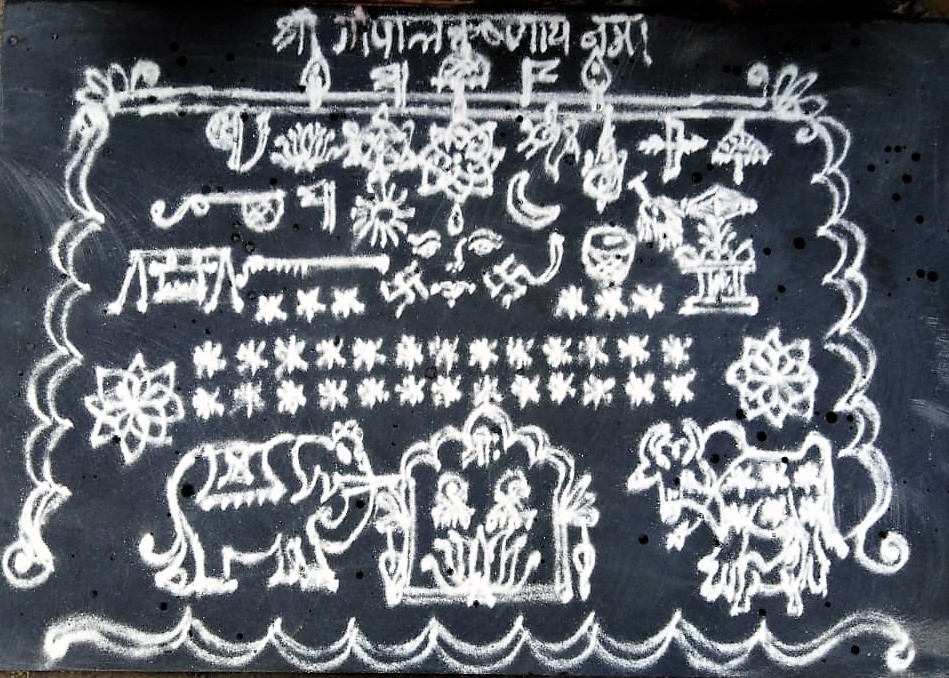 श्री गोपालकृष्णाय नमः
श्री